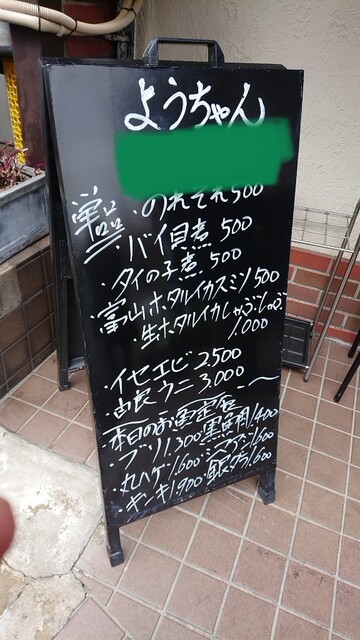 ようちゃん
単品 ・のれそれ 500
・バイ貝煮 500
・タイの子煮 500
・富山ホタルイカスミツ 500
・生ホタルイカしゃぶしゃぶ
1000
・イセエビ 2500
・由良ウニ 3000
本日のお魚定食
ブリ 1300 黒
丸ハゲ 1600
キンキ 1900 銀ダラ 1600